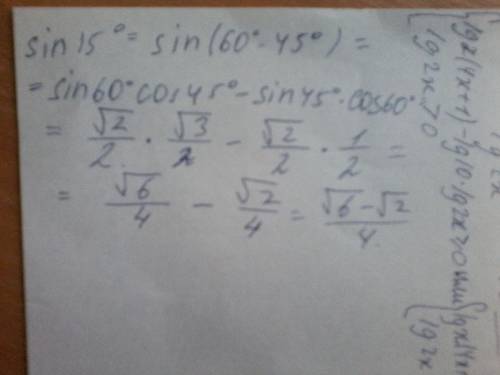 sin 15° = sin(60° - 45°) =
= sin60° cos45° - sin45° · cos60°
= √2/2 · √3/2 - √2/2 · 1/2 =
= √6/4 - √2/4 = (√6 - √2)/4
lg 2x > 0